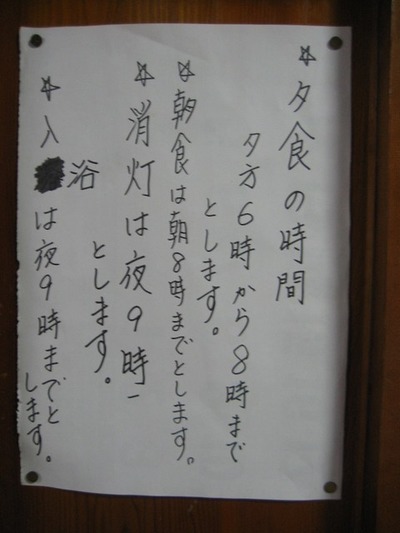 ☆夕食の時間
夕方6時から8時まで
とします。
☆朝食は朝8時までとします。
☆消灯は夜9時
とします。
☆入浴は夜9時までと
します。